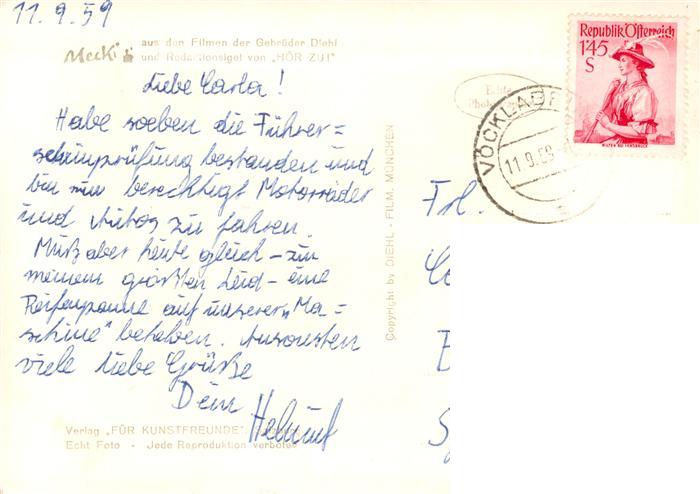 11.9.59
Mecki
aus den Filmen der Gebrüder Diehl
und Redaktionsigel von „HÖR ZU!"
Liebe Carla!
Habe soeben die Führer=
scheinprüfung bestanden und
bin nun berechtigt Motorräder
und Autos zu fahren.
Muß aber heute gleich – zu
meinem größten Leid – eine
Reifenpanne auf unserer „Ma=
schine" beheben. Ansonsten
viele liebe Grüße
Dein Helmut
Verlag „FÜR KUNSTFREUNDE"
Echt Foto - Jede Reproduktion verboten
Copyright by DIEHL - FILM, MÜNCHEN
Echte
VÖCKLA
11.9.59
Republik Österreich
1'45
S
Frl.